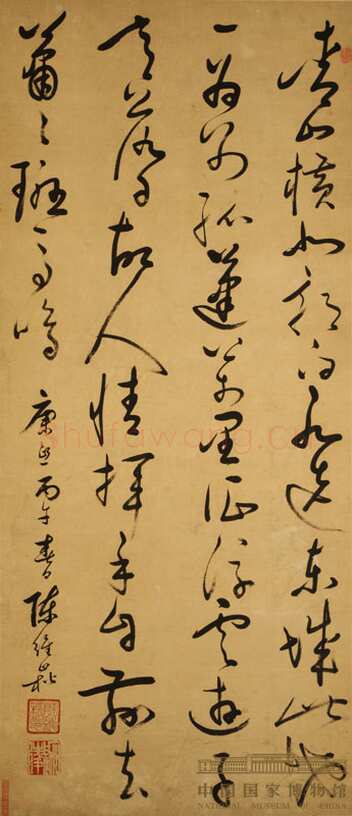 青山橫北郭白水遶東城此地
一為別孤蓬萬里征浮雲遊子
意落日故人情揮手自茲去
蕭〻班馬鳴 康熙丙午春日 陳維崧
shufawang.cn
中国国家博物馆
NATIONAL MUSEUM OF CHINA